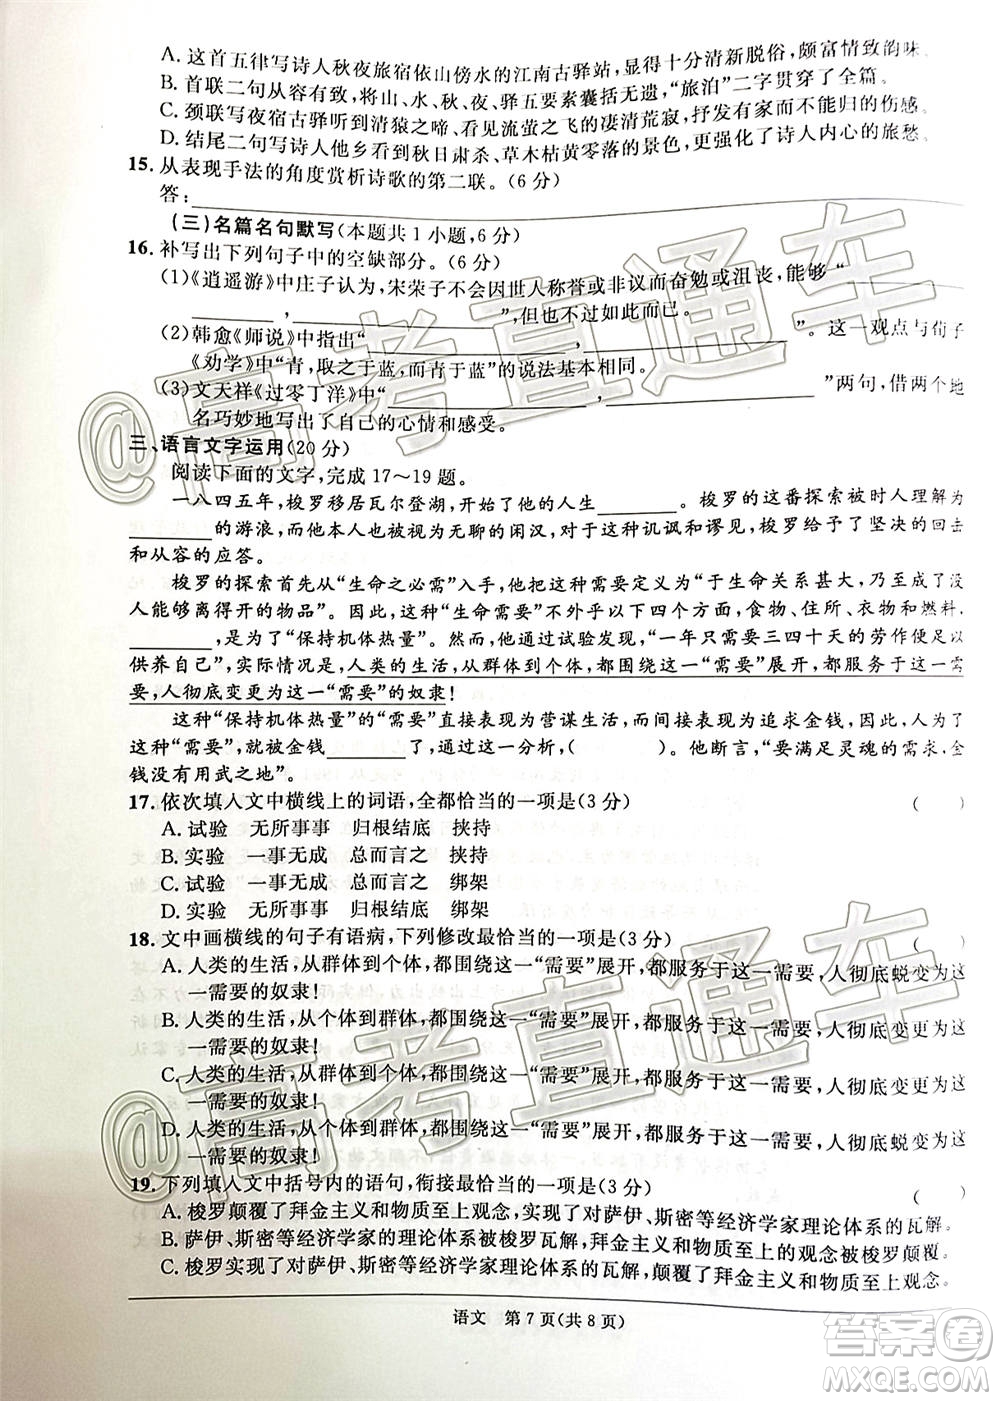 A. 这首五律写诗人秋夜旅宿依山傍水的江南古驿站,显得十分清新脱俗,颇富情致韵味。
B. 首联二句发端,将山、水、秋、夜、驿五要素囊括无遗,“旅泊”二字贯穿了全篇。
C. 颈联写夜宿古驿听到清猿之啼、看见流萤之飞的凄清荒寂,抒发有家而不能归的伤感。
D. 结尾二句写诗人他乡看到秋日肃杀、草木枯黄零落的景色,突出了诗人内心的旅愁。
15. 从表现手法的角度赏析诗歌的第二联。(6 分)
答:
(三)名篇名句默写(本题共 1 小题,6 分)
16. 补写出下列句子中的空缺部分。(6 分)
(1)《逍遥游》中庄子认为,宋荣子不会因世人称誉或非议而奋勉或沮丧,能够“
________,________”,但也不过如此而已。
(2) 韩愈《师说》中指出“________,________”。这一观点与荀子
《劝学》中“青,取之于蓝,而青于蓝”的说法基本相同。
(3) 文天祥《过零丁洋》中“________,________”两句,借两个地
名巧妙地写出了自己的心情和感受。
三、语言文字运用(20 分)
阅读下面的文字,完成 17～19 题。
一八四五年,梭罗移居瓦尔登湖,开始了他的人生________。梭罗的这番探索被时人理解为
________的游浪,而他本人也被视为无聊的闲汉,对于这种讥讽和谬见,梭罗给予了坚决的回击
和从容的应答。
梭罗的探索首先从“生命之必需”入手,他把这种需要定义为“于生命关系甚大,乃至成了没
人能够离得开的物品”。因此,这种“生命需要”不外乎以下四个方面,食物、住所、衣物和燃料,
________,是为了“保持机体热量”。然而,他通过试验发现,“一年只需要三四十天的劳作便足以
供养自己”,实际情况是,人类的生活,从群体到个体,都围绕这一“需要”展开,都服务于这一需
要,人彻底变更为这一“需要”的奴隶!
这种“保持机体热量”的“需要”直接表现为营谋生活,而间接表现为追求金钱,从而,人为了
这种“需要”,就被金钱________了,通过这一分析,(        )。他断言,“要满足灵魂的需求,金
钱没有用武之地”。
17. 依次填入文中横线上的词语,全都恰当的一项是(3 分) (    )
A. 试验 无所事事 归根结底 挟持
B. 实验 一事无成 总而言之 挟持
C. 试验 一事无成 总而言之 绑架
D. 实验 无所事事 归根结底 绑架
18. 文中画横线的句子有语病,下列修改最恰当的一项是(3 分) (    )
A. 人类的生活,从群体到个体,都围绕这一“需要”展开,都服务于这一需要,人彻底蜕变为这
一需要的奴隶!
B. 人类的生活,从个体到群体,都围绕这一“需要”展开,都服务于这一需要,人彻底变更为这
一需要的奴隶!
C. 人类的生活,从群体到个体,都围绕这一“需要”展开,都服务于这一需要,人彻底变更为这
一需要的奴隶!
D. 人类的生活,从个体到群体,都围绕这一“需要”展开,都服务于这一需要,人彻底蜕变为这
一需要的奴隶!
19. 下列填入文中括号内的语句,衔接最恰当的一项是(3 分) (    )
A. 梭罗颠覆了拜金主义和物质至上观念,实现了对萨伊、斯密等经济学家理论体系的瓦解。
B. 萨伊、斯密等经济学家的理论体系被梭罗瓦解,拜金主义和物质至上的观念被梭罗颠覆。
C. 梭罗实现了对萨伊、斯密等经济学家理论体系的瓦解,颠覆了拜金主义和物质至上观念。
语文 第 7 页(共 8 页)
@高考直通车
@高考直通车
答案圈
MXQE.COM